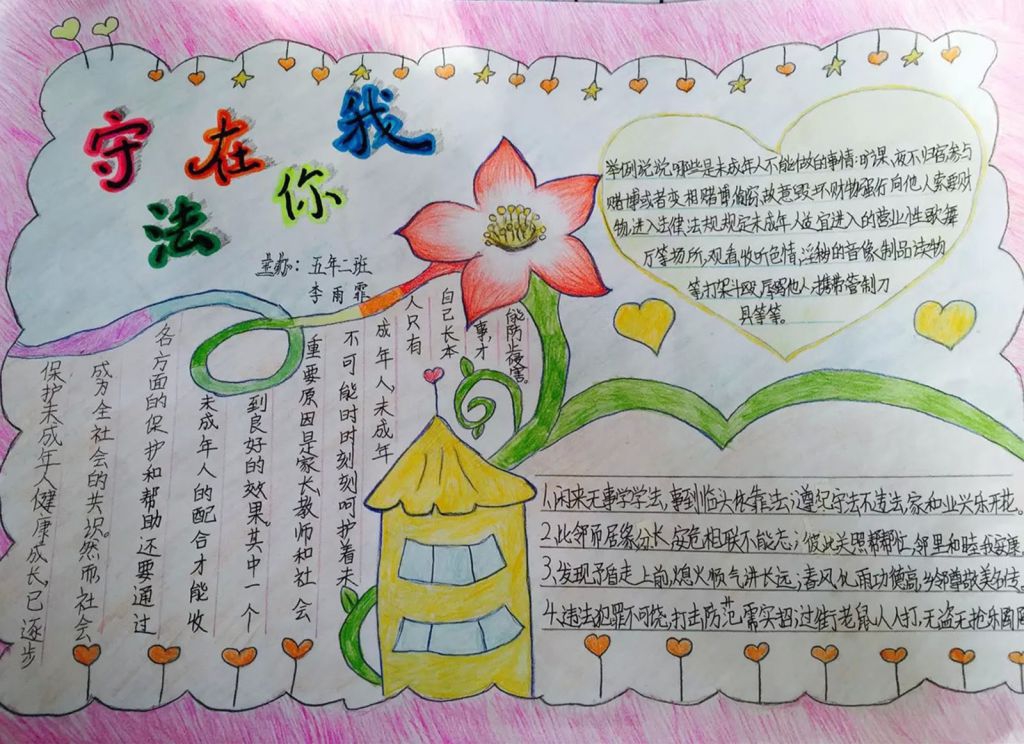 守在我
法你
主办：五年二班
李雨霏
保护未成年人健康成长,已逐步
成为全社会的共识。然而,社会
各方面的保护和帮助还要通过
未成年人的配合才能收
到良好的效果。其中一个
重要原因是家长、教师和社会
不可能时时刻刻呵护着未
成年人,未成年
人只有
自己长本
事,才
能防止侵害。
举例说说哪些是未成年人不能做的事情:旷课、夜不归宿,参与
赌博或者变相赌博偷窃故意毁坏财物强行向他人索要财
物,进入法律法规规定未成年人 宜进入的营业性歌舞
厅等场所,观看收听色情,淫秽的音像制品读物
等打架斗殴辱骂他人,携带管制刀
具等等。
1、闲来无事学学法,事到临头依靠法;遵纪守法不违法,家和业兴乐开花。
2、比邻而居缘分长,安危相联不能忘;彼此关照帮帮忙,邻里和睦我安康
3、发现矛盾走上前,熄火顺气讲长远;春风化雨功德高,乡邻尊敬美名传
4、违法犯罪不可饶,打击防范需实招;过街老鼠人人打,无盗无抢乐陶陶